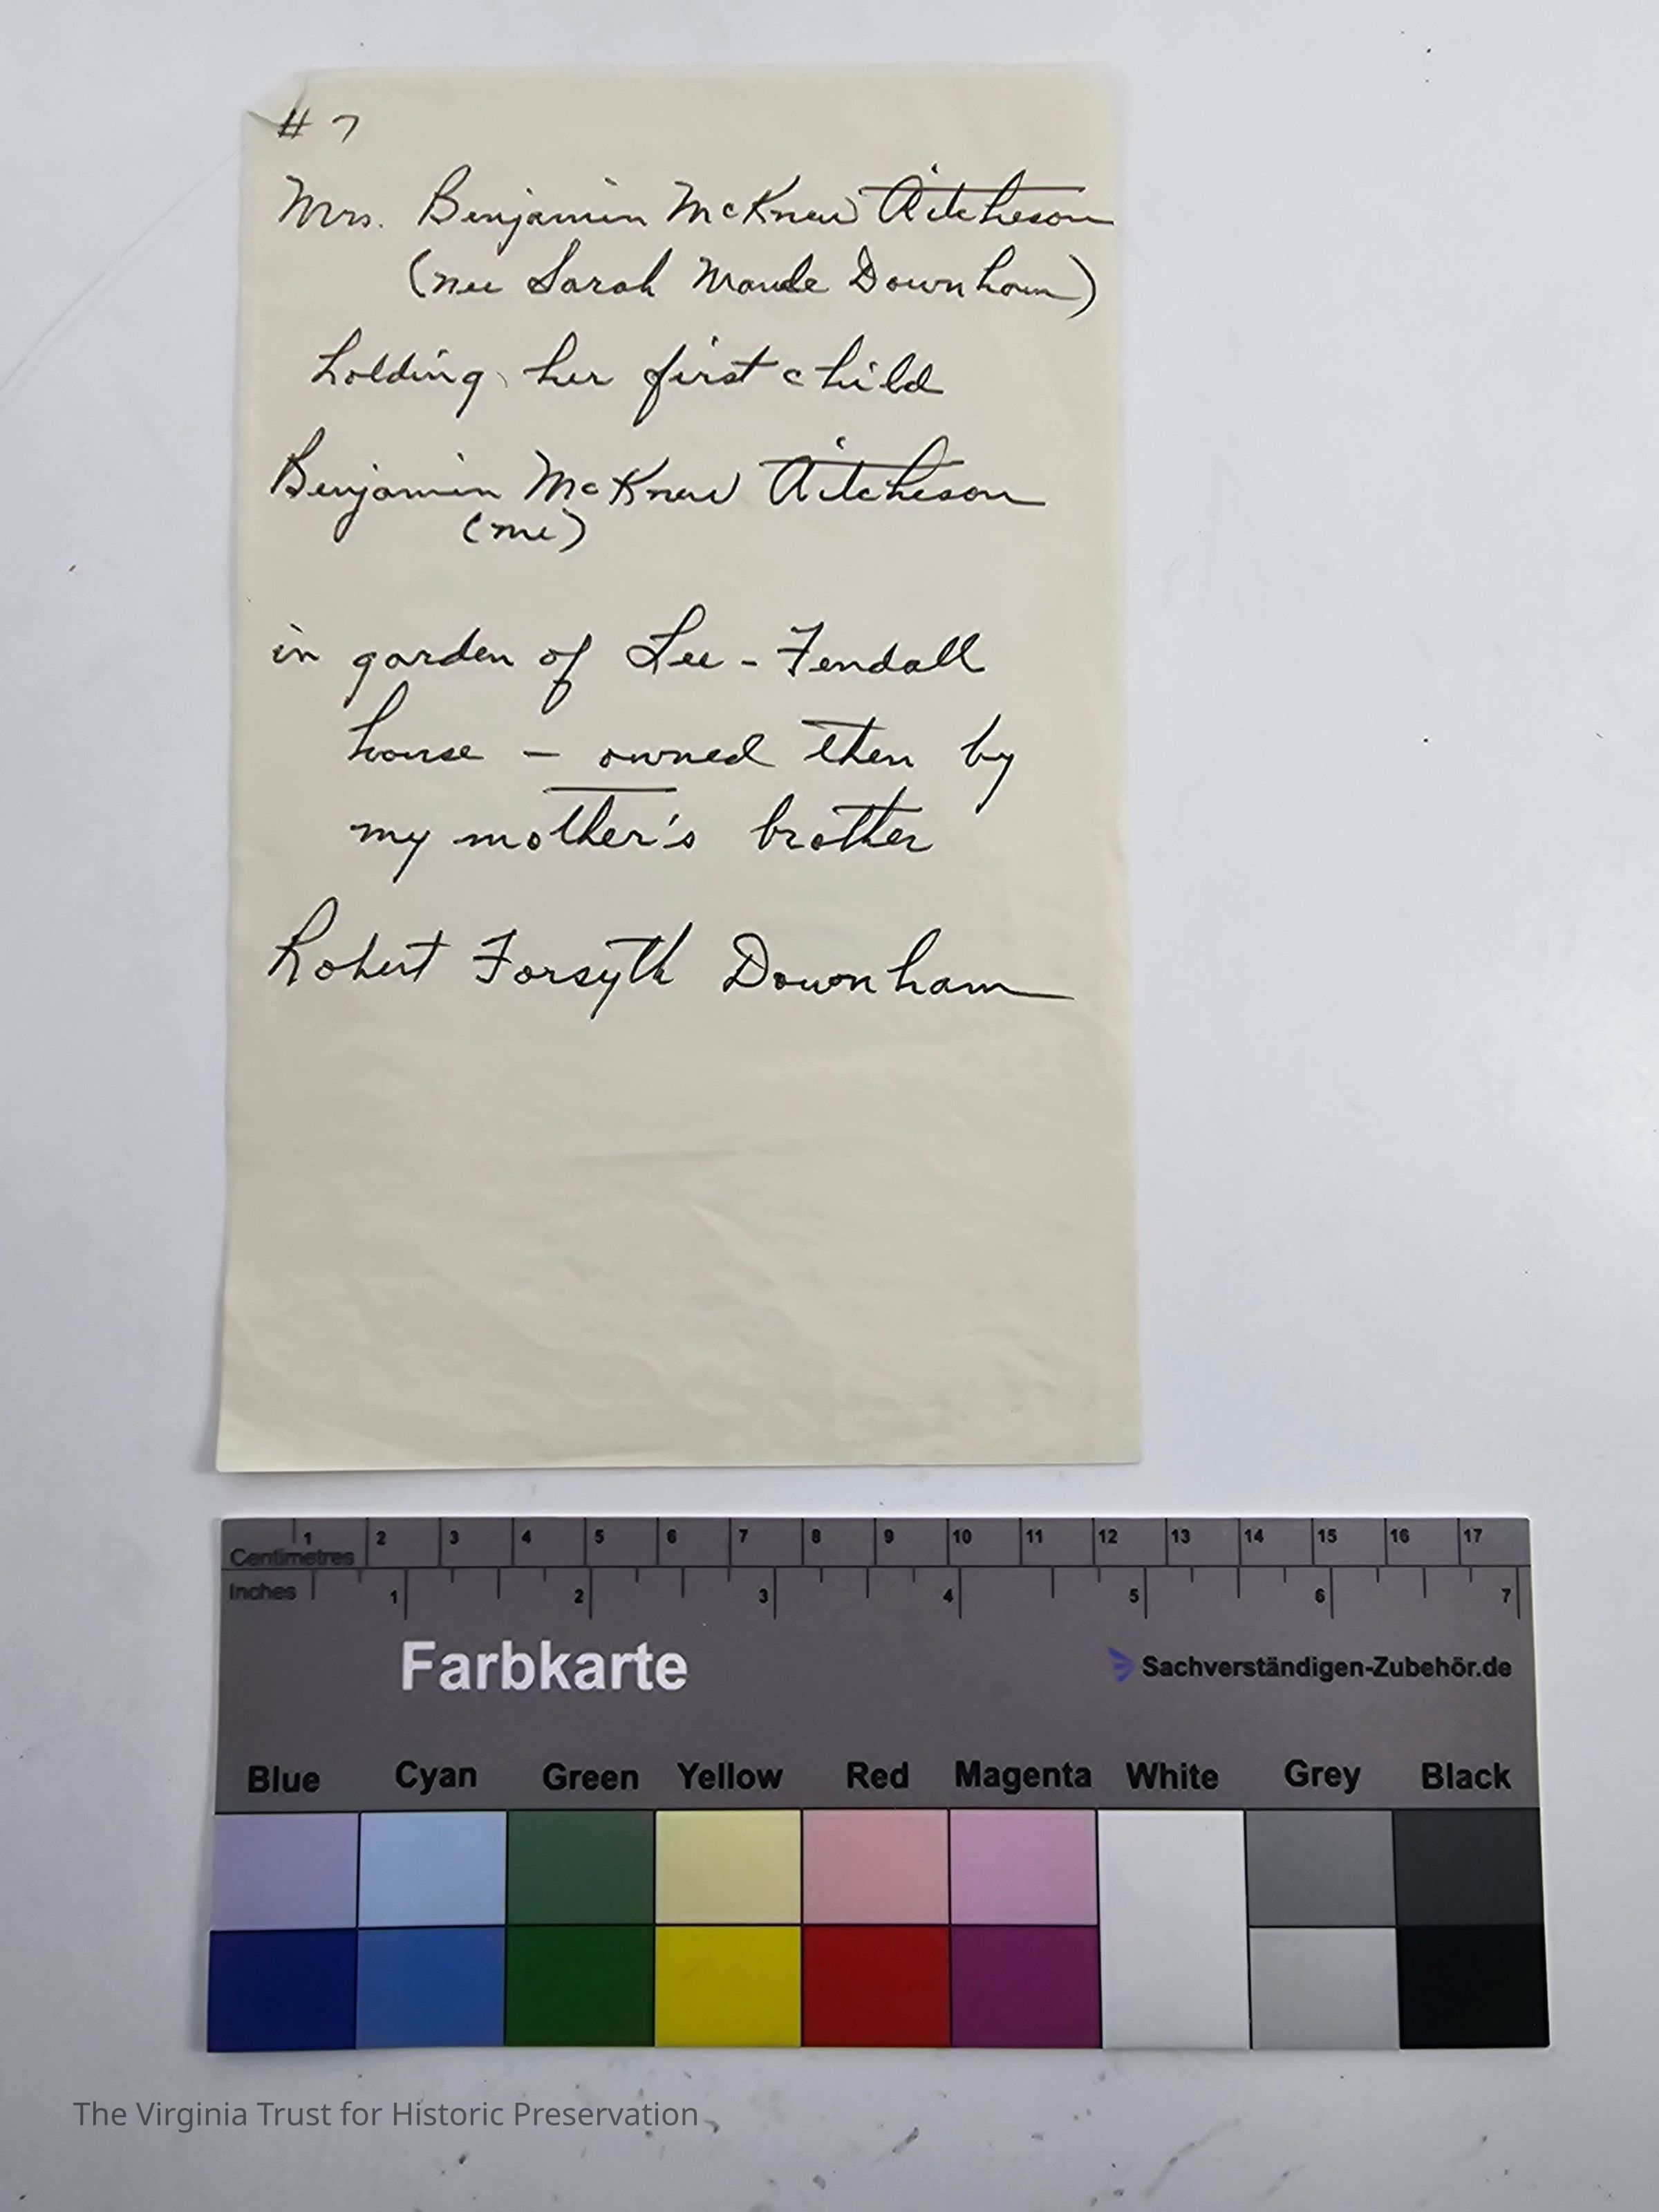 # 7
Mrs. Benjamin McKnew Aitcheson
(nee Sarah Maude Downham)
holding her first child
Benjamin McKnew Aitcheson
(me)
in garden of Lee - Fendall
house - owned then by
my mother's brother
Robert Forsyth Downham
1 2 3 4 5 6 7 8 9 10 11 12 13 14 15 16 17
Centimetres
Inches 1 2 3 4 5 6 7
Farbkarte Sachverständigen-Zubehör.de
Blue Cyan Green Yellow Red Magenta White Grey Black
The Virginia Trust for Historic Preservation